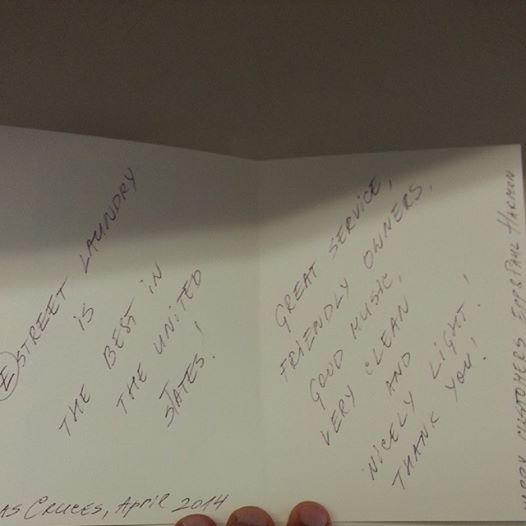 E STREET LAUNDRY
IS
THE BEST IN
THE UNITED
STATES!
AS CRUCES, APRIL 2014
GREAT SERVICE,
FRIENDLY OWNERS,
GOOD MUSIC,
VERY CLEAN
AND
NICELY LIGHT!
THANK YOU!
CUSTOMERS PAUL HARMON